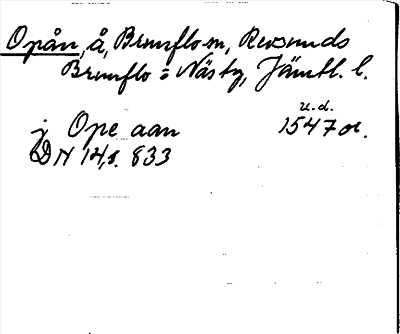 Opån, å, Brunflo sn, Revsunds
Brunflo o Näs tg, Jämtl. l.
u.d.
j Ope aan 1547 or.
DN 14, s. 833